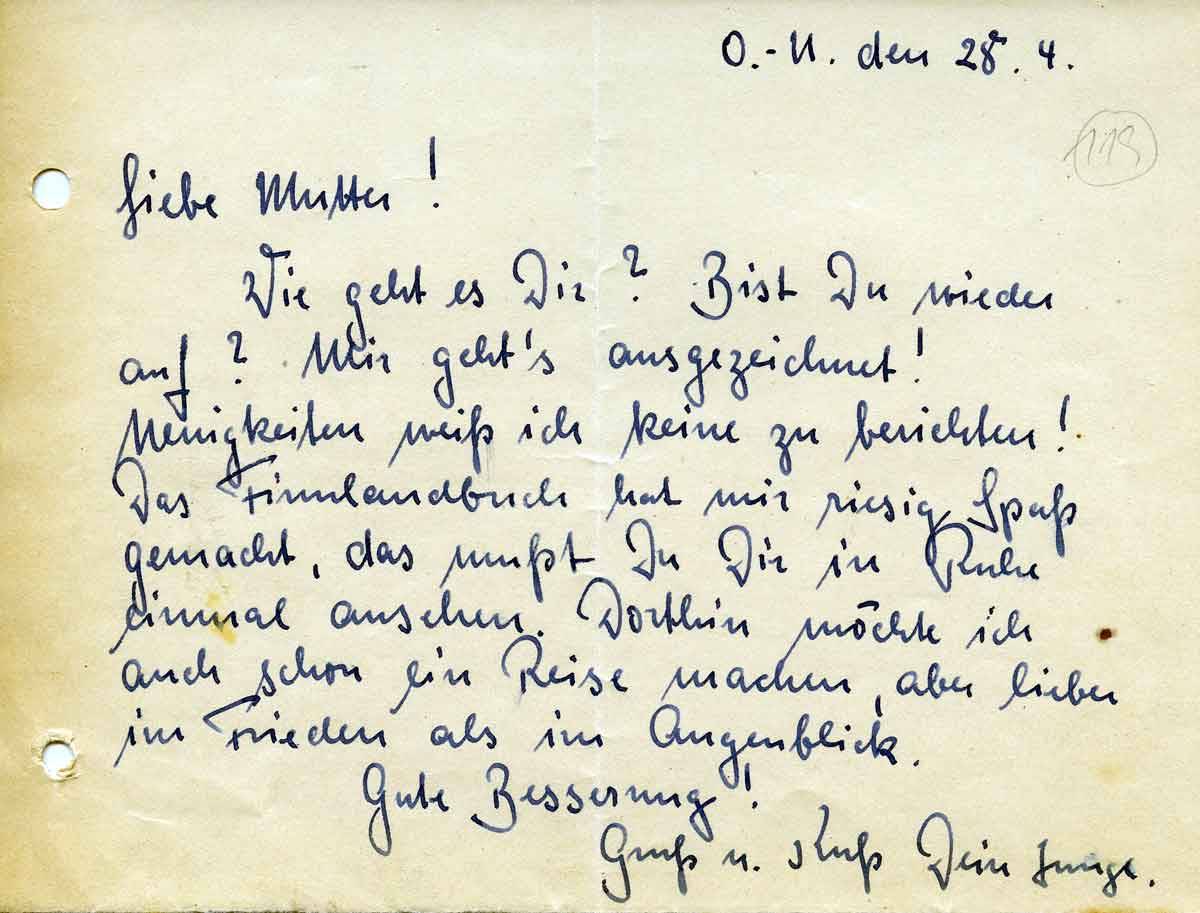 O.-U. den 28. 4.
113
Liebe Mutter!
Wie geht es Dir? Bist Du wieder
auf? Mir geht's ausgezeichnet!
Neuigkeiten weiß ich keine zu berichten!
Das Finnlandbuch hat mir riesig Spaß
gemacht, das mußt Du Dir in Ruhe
einmal ansehen. Dorthin möchte ich
auch schon ein Reise machen, aber lieber
im Frieden als im Augenblick.
Gute Besserung!
Gruß u. Kuß Dein Junge.